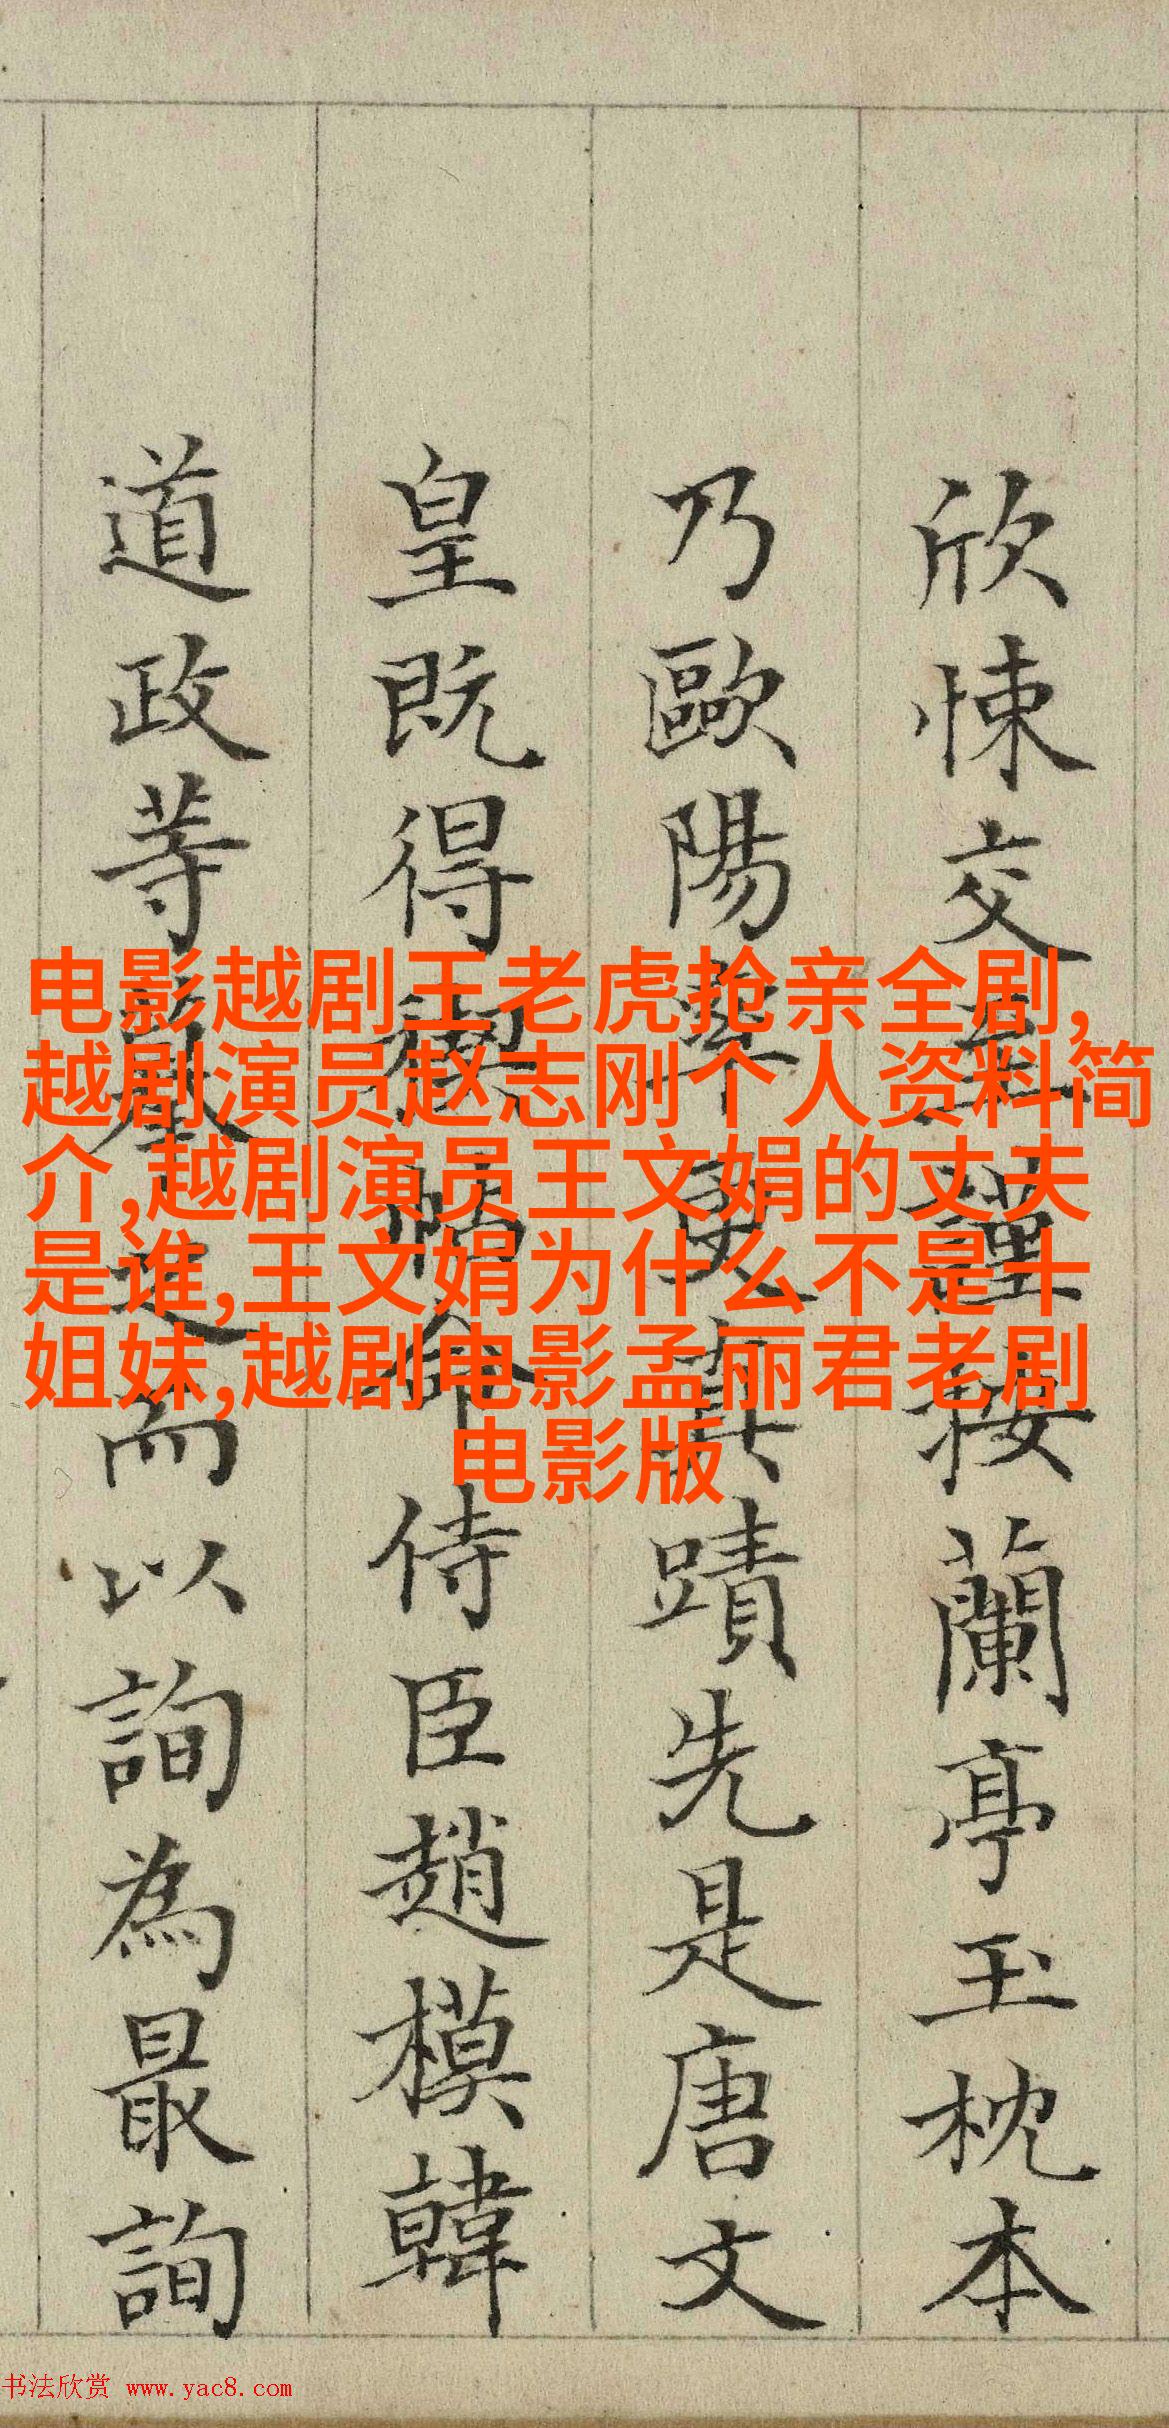 电影越剧王老虎抢亲全剧,
越剧演员赵志刚个人资料简
介,越剧演员王文娟的丈夫
是谁,王文娟为什么不是十
姐妹,越剧电影孟丽君老剧
电影版
欣悚交至謹按蘭亭玉枕本
乃歐陽率更真蹟先是唐文
皇既得禊帖命侍臣趙模韓
道政等之而以詢為最詢
书法欣赏 www.yac8.com